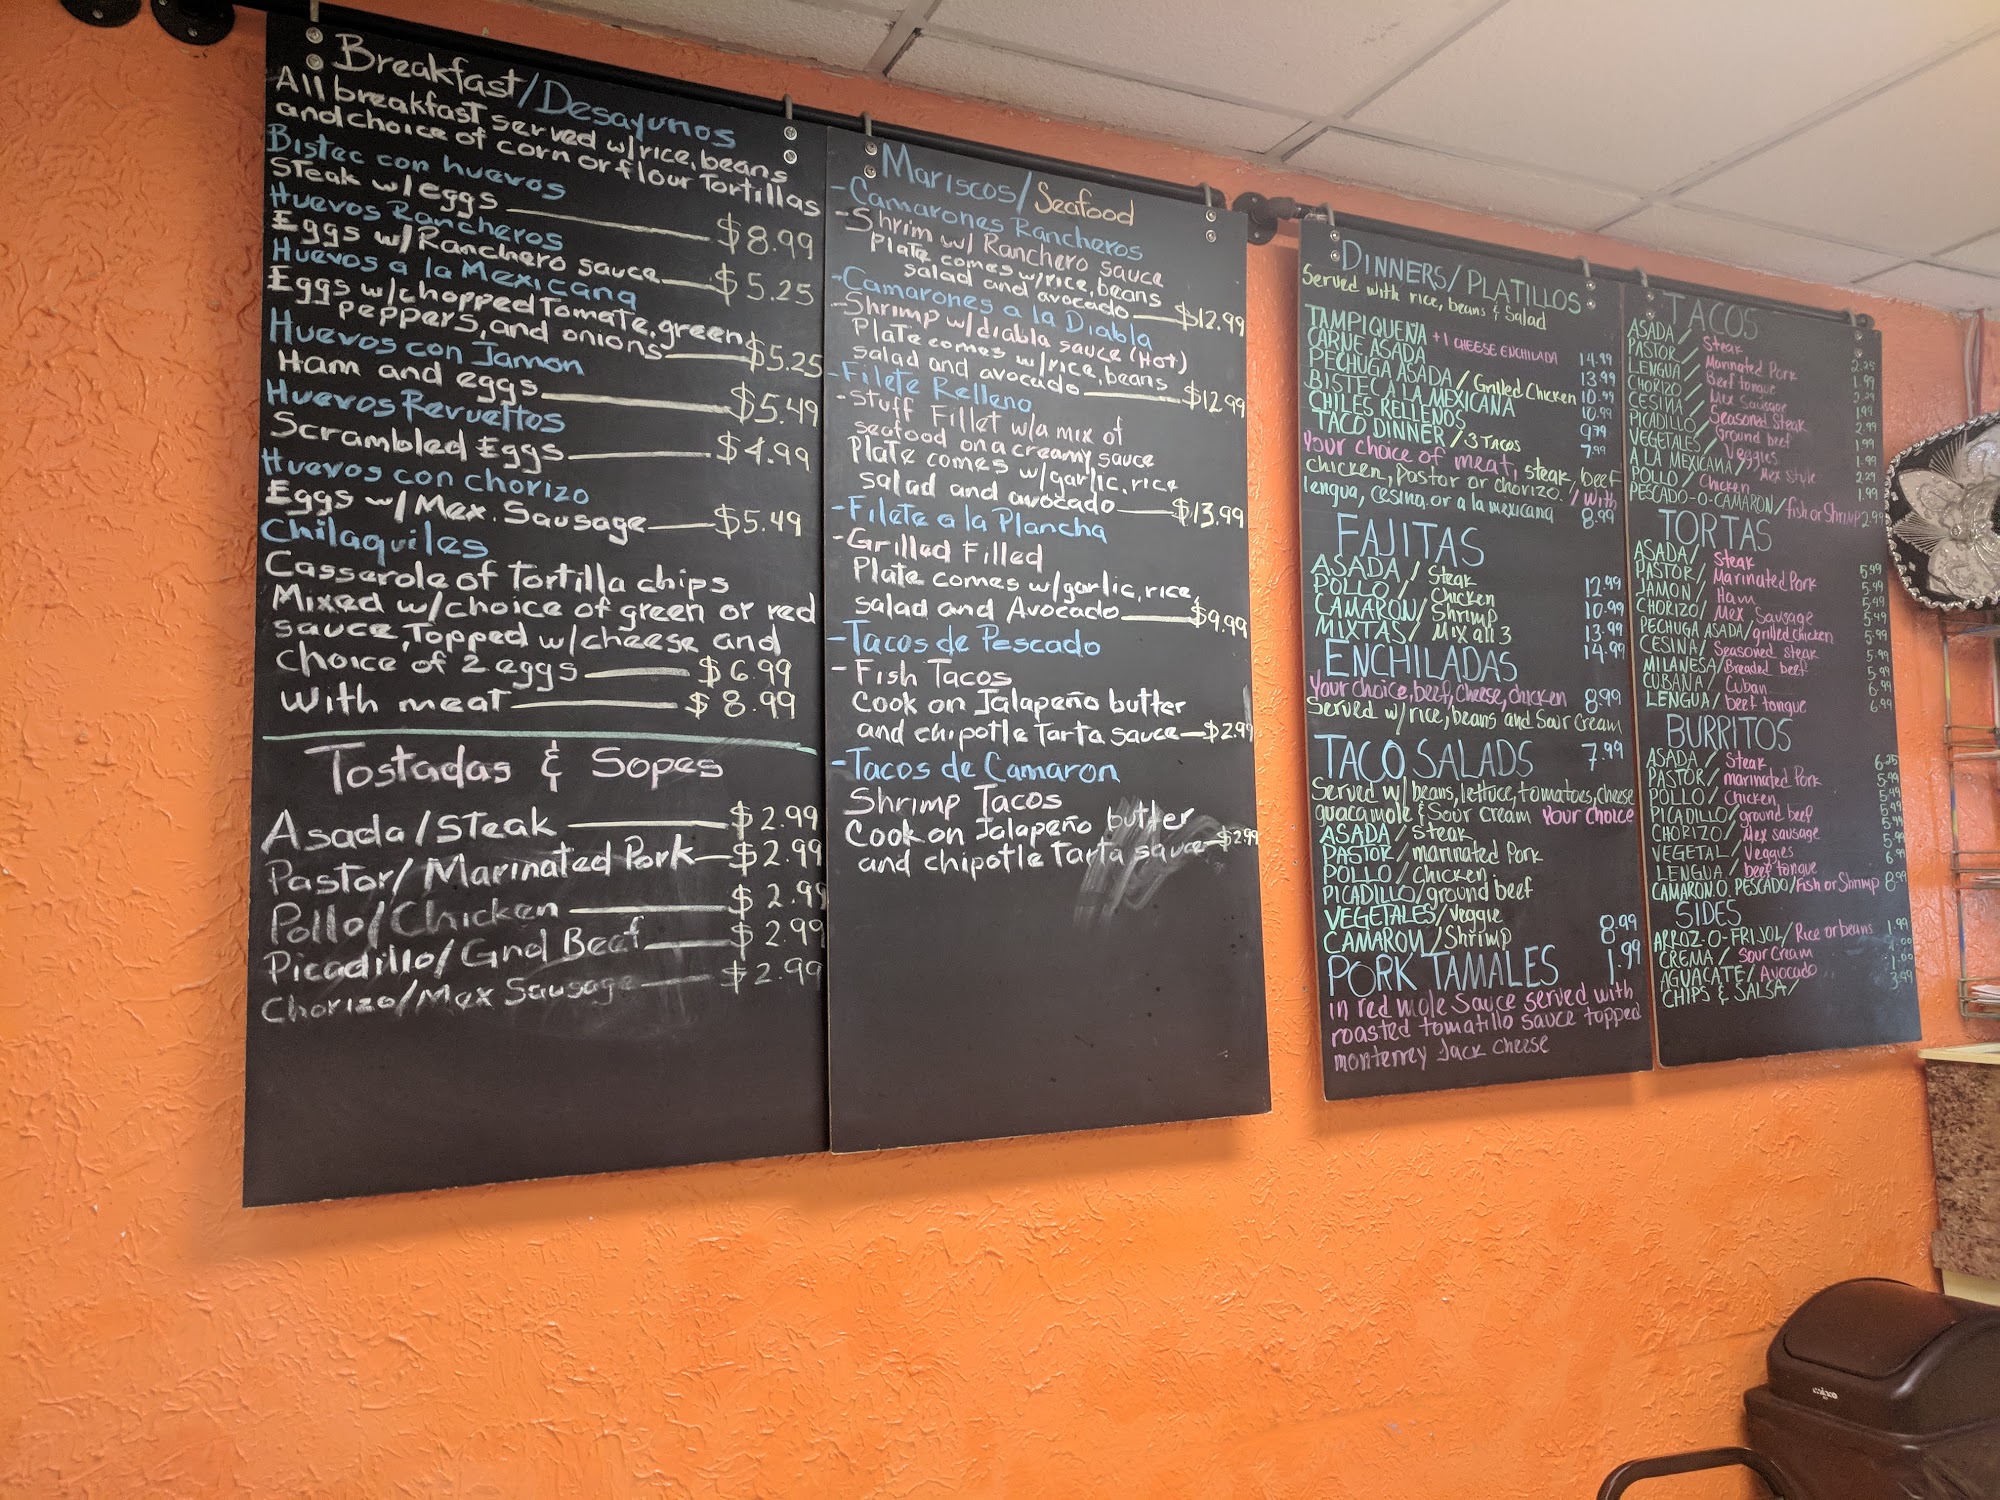 Breakfast/Desayunos
All breakfast served w/rice, beans
and choice of corn or flour Tortillas
Bistec con huevos
Steak w/eggs $8.99
Huevos Rancheros
Eggs w/Ranchero sauce $5.25
Huevos a la Mexicana
Eggs w/chopped Tomate, green
peppers, and onions $5.25
Huevos con Jamon
Ham and eggs $5.49
Huevos Revueltos
Scrambled Eggs $4.99
Huevos con chorizo
Eggs w/Mex. Sausage $5.49
Chilaquiles
Casserole of Tortilla chips
Mixed w/choice of green or red
sauce, Topped w/cheese and
choice of 2 eggs $6.99
With meat $8.99
Tostadas & Sopes
Asada/Steak $2.99
Pastor/Marinated Pork $2.99
Pollo/Chicken $2.99
Picadillo/Grnd Beef $2.99
Chorizo/Mex Sausage $2.99
Mariscos/Seafood
-Camarones Rancheros
-Shrim w/Ranchero sauce
Plate comes w/rice, beans
salad and avocado $12.99
-Camarones a la Diabla
-Shrimp w/diabla sauce (Hot)
Plate comes w/rice, beans
salad and avocado $12.99
-Filete Relleno
-Stuff Fillet w/a mix of
seafood on a creamy sauce
Plate comes w/garlic, rice
salad and avocado $13.99
-Filete a la Plancha
-Grilled Filled
Plate comes w/garlic, rice,
salad and Avocado $9.99
-Tacos de Pescado
-Fish Tacos
Cook on Jalapeño butter
and chipotle Tarta sauce $2.99
-Tacos de Camaron
Shrimp Tacos
Cook on Jalapeño butter
and chipotle Tarta sauce $2.99
DINNERS/PLATILLOS
Served with rice, beans & Salad
TAMPIQUEÑA +1 CHEESE ENCHILADA 14.99
CARNE ASADA 13.99
PECHUGA ASADA/Grilled Chicken 10.99
BISTEC A LA MEXICANA 10.99
CHILES RELLENOS 9.99
TACO DINNER/3 TACOS 7.99
Your choice of meat, steak, beef
chicken, Pastor or chorizo. / with
lengua, cesina or a la mexicana 8.99
FAJITAS
ASADA/Steak 12.99
POLLO/Chicken 10.99
CAMARON/Shrimp 13.99
MIXTAS/Mix all 3 14.99
ENCHILADAS
Your choice, beef, cheese, chicken 8.99
Served w/rice, beans and Sour Cream
TACO SALADS 7.99
Served w/beans, lettuce, tomatoes, cheese
guacamole & Sour Cream Your choice
ASADA/Steak
PASTOR/marinated Pork
POLLO/Chicken
PICADILLO/ground beef
VEGETALES/Veggie
CAMARON/Shrimp 8.99
PORK TAMALES 1.99
in red mole Sauce served with
roasted tomatillo sauce topped
monterrey Jack cheese
TACOS
ASADA/Steak 2.25
PASTOR/Marinated Pork 1.99
LENGUA/Beef tongue
CHORIZO/Mex Sausage 1.99
CESINA/Seasoned Steak 2.99
PICADILLO/Ground beef 1.99
VEGETALES/Veggies 1.99
A LA MEXICANA/Mex style 2.29
POLLO/Chicken 1.99
PESCADO-O-CAMARON/fish or Shrimp 2.99
TORTAS
ASADA/Steak 5.99
PASTOR/Marinated Pork 5.99
JAMON/Ham 5.49
CHORIZO/Mex Sausage 5.49
PECHUGA ASADA/grilled chicken 5.99
CESINA/Seasoned steak 5.99
MILANESA/Breaded beef 5.99
CUBANA/Cuban 6.99
LENGUA/beef tongue 6.99
BURRITOS
ASADA/Steak 6.25
PASTOR/marinated Pork 5.99
POLLO/Chicken 5.99
PICADILLO/ground beef 5.99
CHORIZO/Mex sausage 5.99
VEGETAL/Veggies 5.99
LENGUA/beef tongue 6.99
CAMARON.O.PESCADO/Fish or Shrimp 8.99
SIDES
ARROZ-O-FRIJOL/Rice or beans 1.99
CREMA/Sour Cream 1.00
AGUACATE/Avocado 1.00
CHIPS & SALSA/ 3.99